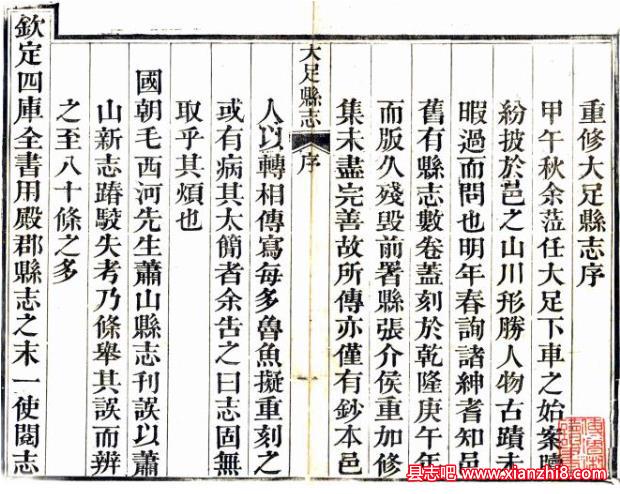 重修大足縣志序
甲午秋余蒞任大足下車之始案牘
紛披於邑之山川形勝人物古蹟未
暇過而問也明年春詢諸紳耆知邑
舊有縣志數卷蓋刻於乾隆庚午年
而版久殘毀前署縣張介侯重加修
集未盡完善故所傳亦僅有鈔本邑
大足縣志 序
人以轉相傳寫每多魯魚擬重刻之
或有病其太簡者余告之曰志固無
取乎其煩也
國朝毛西河先生蕭山縣志刊誤以蕭
山新志踳駁失考乃條舉其誤而辨
之至八十條之多
欽定四庫全書用殿郡縣志之末一使閱志
县志吧
www.xianzhi8.com